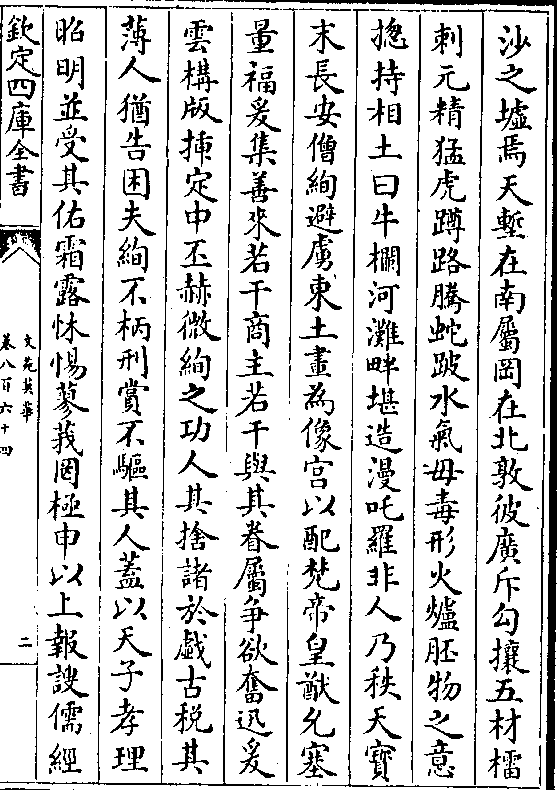 沙之墟焉天塹在南屬岡在北敦彼廣斥勾攘五材櫺
刺元精猛虎蹲路騰蛇跛水氣毋毒形火爐胚物之意
揔持相土曰牛欄河灘畔堪造漫吒羅非人乃秩天寳
末長安僧絢避虜東土畫為像宫以配梵帝皇猷允塞
量福爰集善來若干商主若干與其眷屬争欲奮迅爰
雲構版揷定中丕赫微絢之功人其捨諸於戱古税其
薄人猶告困夫絢不柄刑賞不驅其人蓋以天子孝理
昭明並受其佑霜露怵惕蓼莪罔極申以上報謏儒經
欽定四庫全書
文苑英華
卷八百六十四
二